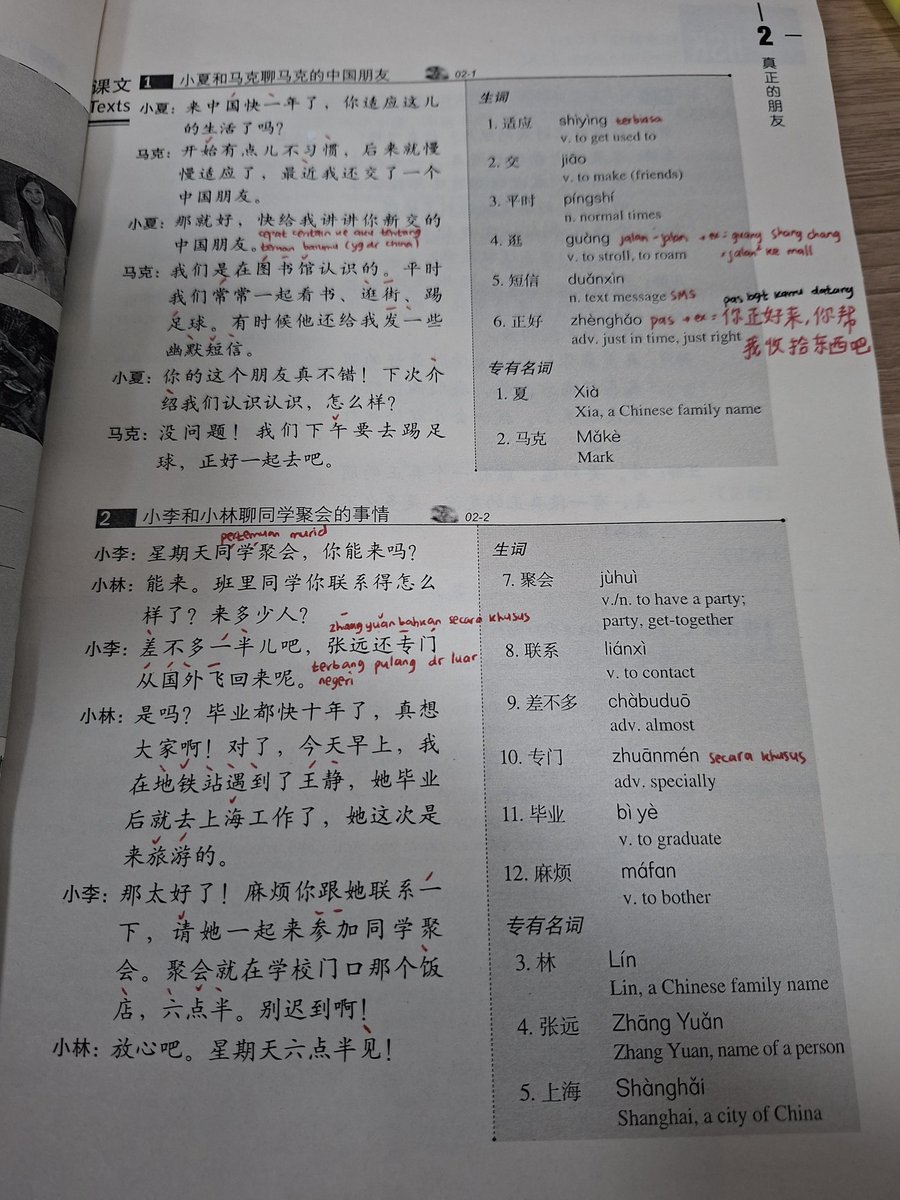 2
真正的朋友
课文
Texts
1 小夏和马克聊马克的中国朋友 02-1
小夏：来中国快一年了，你适应这儿
的生活了吗？
马克：开始有点儿不习惯，后来就慢
慢适应了，最近我还交了一个
中国朋友。
小夏：那就好，快给我讲讲你新交的
中国朋友。
teman barumu (yg dr china)
马克：我们是在图书馆认识的。平时
我们常常一起看书、逛街、踢
足球。有时候他还给我发一些
幽默短信。
小夏：你的这个朋友真不错！下次介
绍我们认识认识，怎么样？
马克：没问题！我们下午要去踢足
球，正好一起去吧。
生词
1. 适应 shìyìng terbiasa
v. to get used to
2. 交 jiāo
v. to make (friends)
3. 平时 píngshí
n. normal times
4. 逛 guàng jalan-jalan → ex: guang shang chang
v. to stroll, to roam • jalan² ke mall
5. 短信 duǎnxìn
n. text message SMS
pas bgt kamu datang
6. 正好 zhènghǎo pas → ex: 你正好来，你帮
adv. just in time, just right 我收拾东西吧
专有名词
1. 夏 Xià
Xia, a Chinese family name
2. 马克 Mǎkè
Mark
2 小李和小林聊同学聚会的事情 02-2
pertemuan murid
小李：星期天同学聚会，你能来吗？
小林：能来。班里同学你联系得怎么
样了？来多少人？
zhang yuan bahkan secara khusus
小李：差不多一半儿吧，张远还专门
从国外飞回来呢。
terbang pulang dr luar
negeri
小林：是吗？毕业都快十年了，真想
大家啊！对了，今天早上，我
在地铁站遇到了王静，她毕业
后就去上海工作了，她这次是
来旅游的。
小李：那太好了！麻烦你跟她联系一
下，请她一起来参加同学聚
会。聚会就在学校门口那个饭
店，六点半。别迟到啊！
小林：放心吧。星期天六点半见！
生词
7. 聚会 jùhuì
v./n. to have a party;
party, get-together
8. 联系 liánxì
v. to contact
9. 差不多 chàbuduō
adv. almost
10. 专门 zhuānmén secara khusus
adv. specially
11. 毕业 bì yè
v. to graduate
12. 麻烦 máfan
v. to bother
专有名词
3. 林 Lín
Lin, a Chinese family name
4. 张远 Zhāng Yuǎn
Zhang Yuan, name of a person
5. 上海 Shànghǎi
Shanghai, a city of China